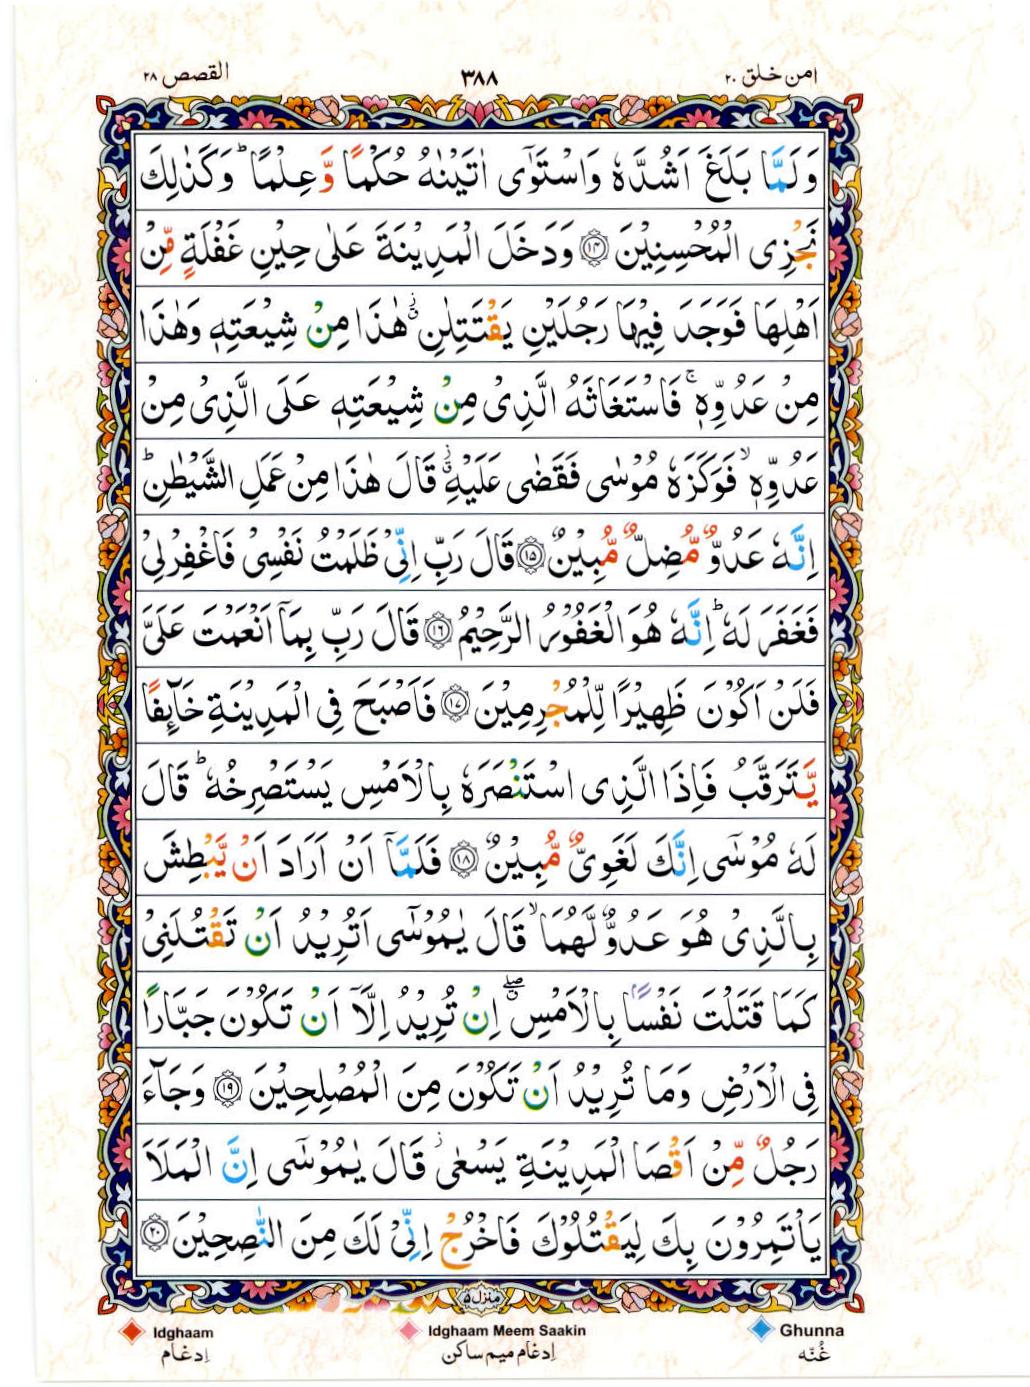 امن خلق ٢٠
٣٨٨
القصص ٢٨
وَلَمَّا بَلَغَ اَشُدَّهٗ وَاسْتَوٰۤى اٰتَيْنٰهُ حُكْمًا وَّعِلْمًا ؕ وَكَذٰلِكَ
نَجْزِى الْمُحْسِنِيْنَ ﴿١٤﴾ وَدَخَلَ الْمَدِيْنَةَ عَلٰى حِيْنِ غَفْلَةٍ مِّنْ
اَهْلِهَا فَوَجَدَ فِيْهَا رَجُلَيْنِ يَقْتَتِلٰنِ ؗ هٰذَا مِنْ شِيْعَتِهٖ وَهٰذَا
مِنْ عَدُوِّهٖ ۚ فَاسْتَغَاثَهُ الَّذِىْ مِنْ شِيْعَتِهٖ عَلَى الَّذِىْ مِنْ
عَدُوِّهٖ ۙ فَوَكَزَهٗ مُوْسٰى فَقَضٰى عَلَيْهِ ؗ قَالَ هٰذَا مِنْ عَمَلِ الشَّيْطٰنِ ؕ
اِنَّهٗ عَدُوٌّ مُّضِلٌّ مُّبِيْنٌ ﴿١٥﴾ قَالَ رَبِّ اِنِّىْ ظَلَمْتُ نَفْسِىْ فَاغْفِرْ لِىْ
فَغَفَرَ لَهٗ ؕ اِنَّهٗ هُوَ الْغَفُوْرُ الرَّحِيْمُ ﴿١٦﴾ قَالَ رَبِّ بِمَاۤ اَنْعَمْتَ عَلَىَّ
فَلَنْ اَكُوْنَ ظَهِيْرًا لِّلْمُجْرِمِيْنَ ﴿١٧﴾ فَاَصْبَحَ فِى الْمَدِيْنَةِ خَآئِفًا
يَّتَرَقَّبُ فَاِذَا الَّذِى اسْتَنْصَرَهٗ بِالْاَمْسِ يَسْتَصْرِخُهٗ ؕ قَالَ
لَهٗ مُوْسٰۤى اِنَّكَ لَغَوِىٌّ مُّبِيْنٌ ﴿١٨﴾ فَلَمَّاۤ اَنْ اَرَادَ اَنْ يَّبْطِشَ
بِالَّذِىْ هُوَ عَدُوٌّ لَّهُمَا ۙ قَالَ يٰمُوْسٰۤى اَتُرِيْدُ اَنْ تَقْتُلَنِىْ
كَمَا قَتَلْتَ نَفْسًۢا بِالْاَمْسِ ۖ اِنْ تُرِيْدُ اِلَّاۤ اَنْ تَكُوْنَ جَبَّارًا
فِى الْاَرْضِ وَمَا تُرِيْدُ اَنْ تَكُوْنَ مِنَ الْمُصْلِحِيْنَ ﴿١٩﴾ وَجَآءَ
رَجُلٌ مِّنْ اَقْصَا الْمَدِيْنَةِ يَسْعٰى ؗ قَالَ يٰمُوْسٰۤى اِنَّ الْمَلَاَ
يَاْتَمِرُوْنَ بِكَ لِيَقْتُلُوْكَ فَاخْرُجْ اِنِّىْ لَكَ مِنَ النّٰصِحِيْنَ ﴿٢٠﴾
منزل ٥
Idghaam
اِدغَام
Idghaam Meem Saakin
اِدغَام ميم ساكن
Ghunna
غُنّه